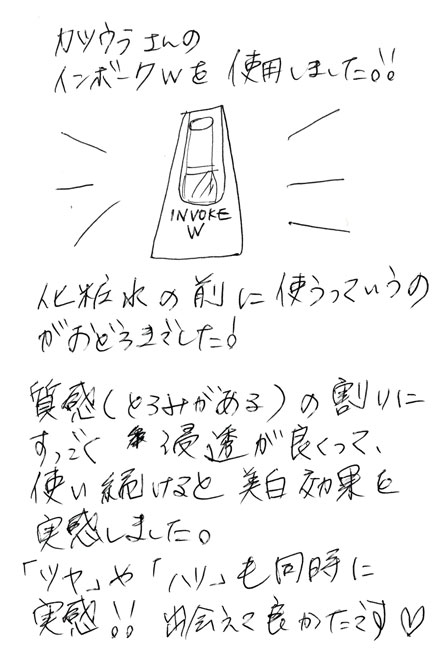 カツウラさんの
インボークWを使用しました!!
INVOKE
W
化粧水の前に使うっていうの
がおどろきでした!
質感(とろみがある)の割りに
すっごく浸透が良くって、
使い続けると美白効果を
実感しました。
「ツヤ」や「ハリ」も同時に
実感!! 出会えて良かたです♡